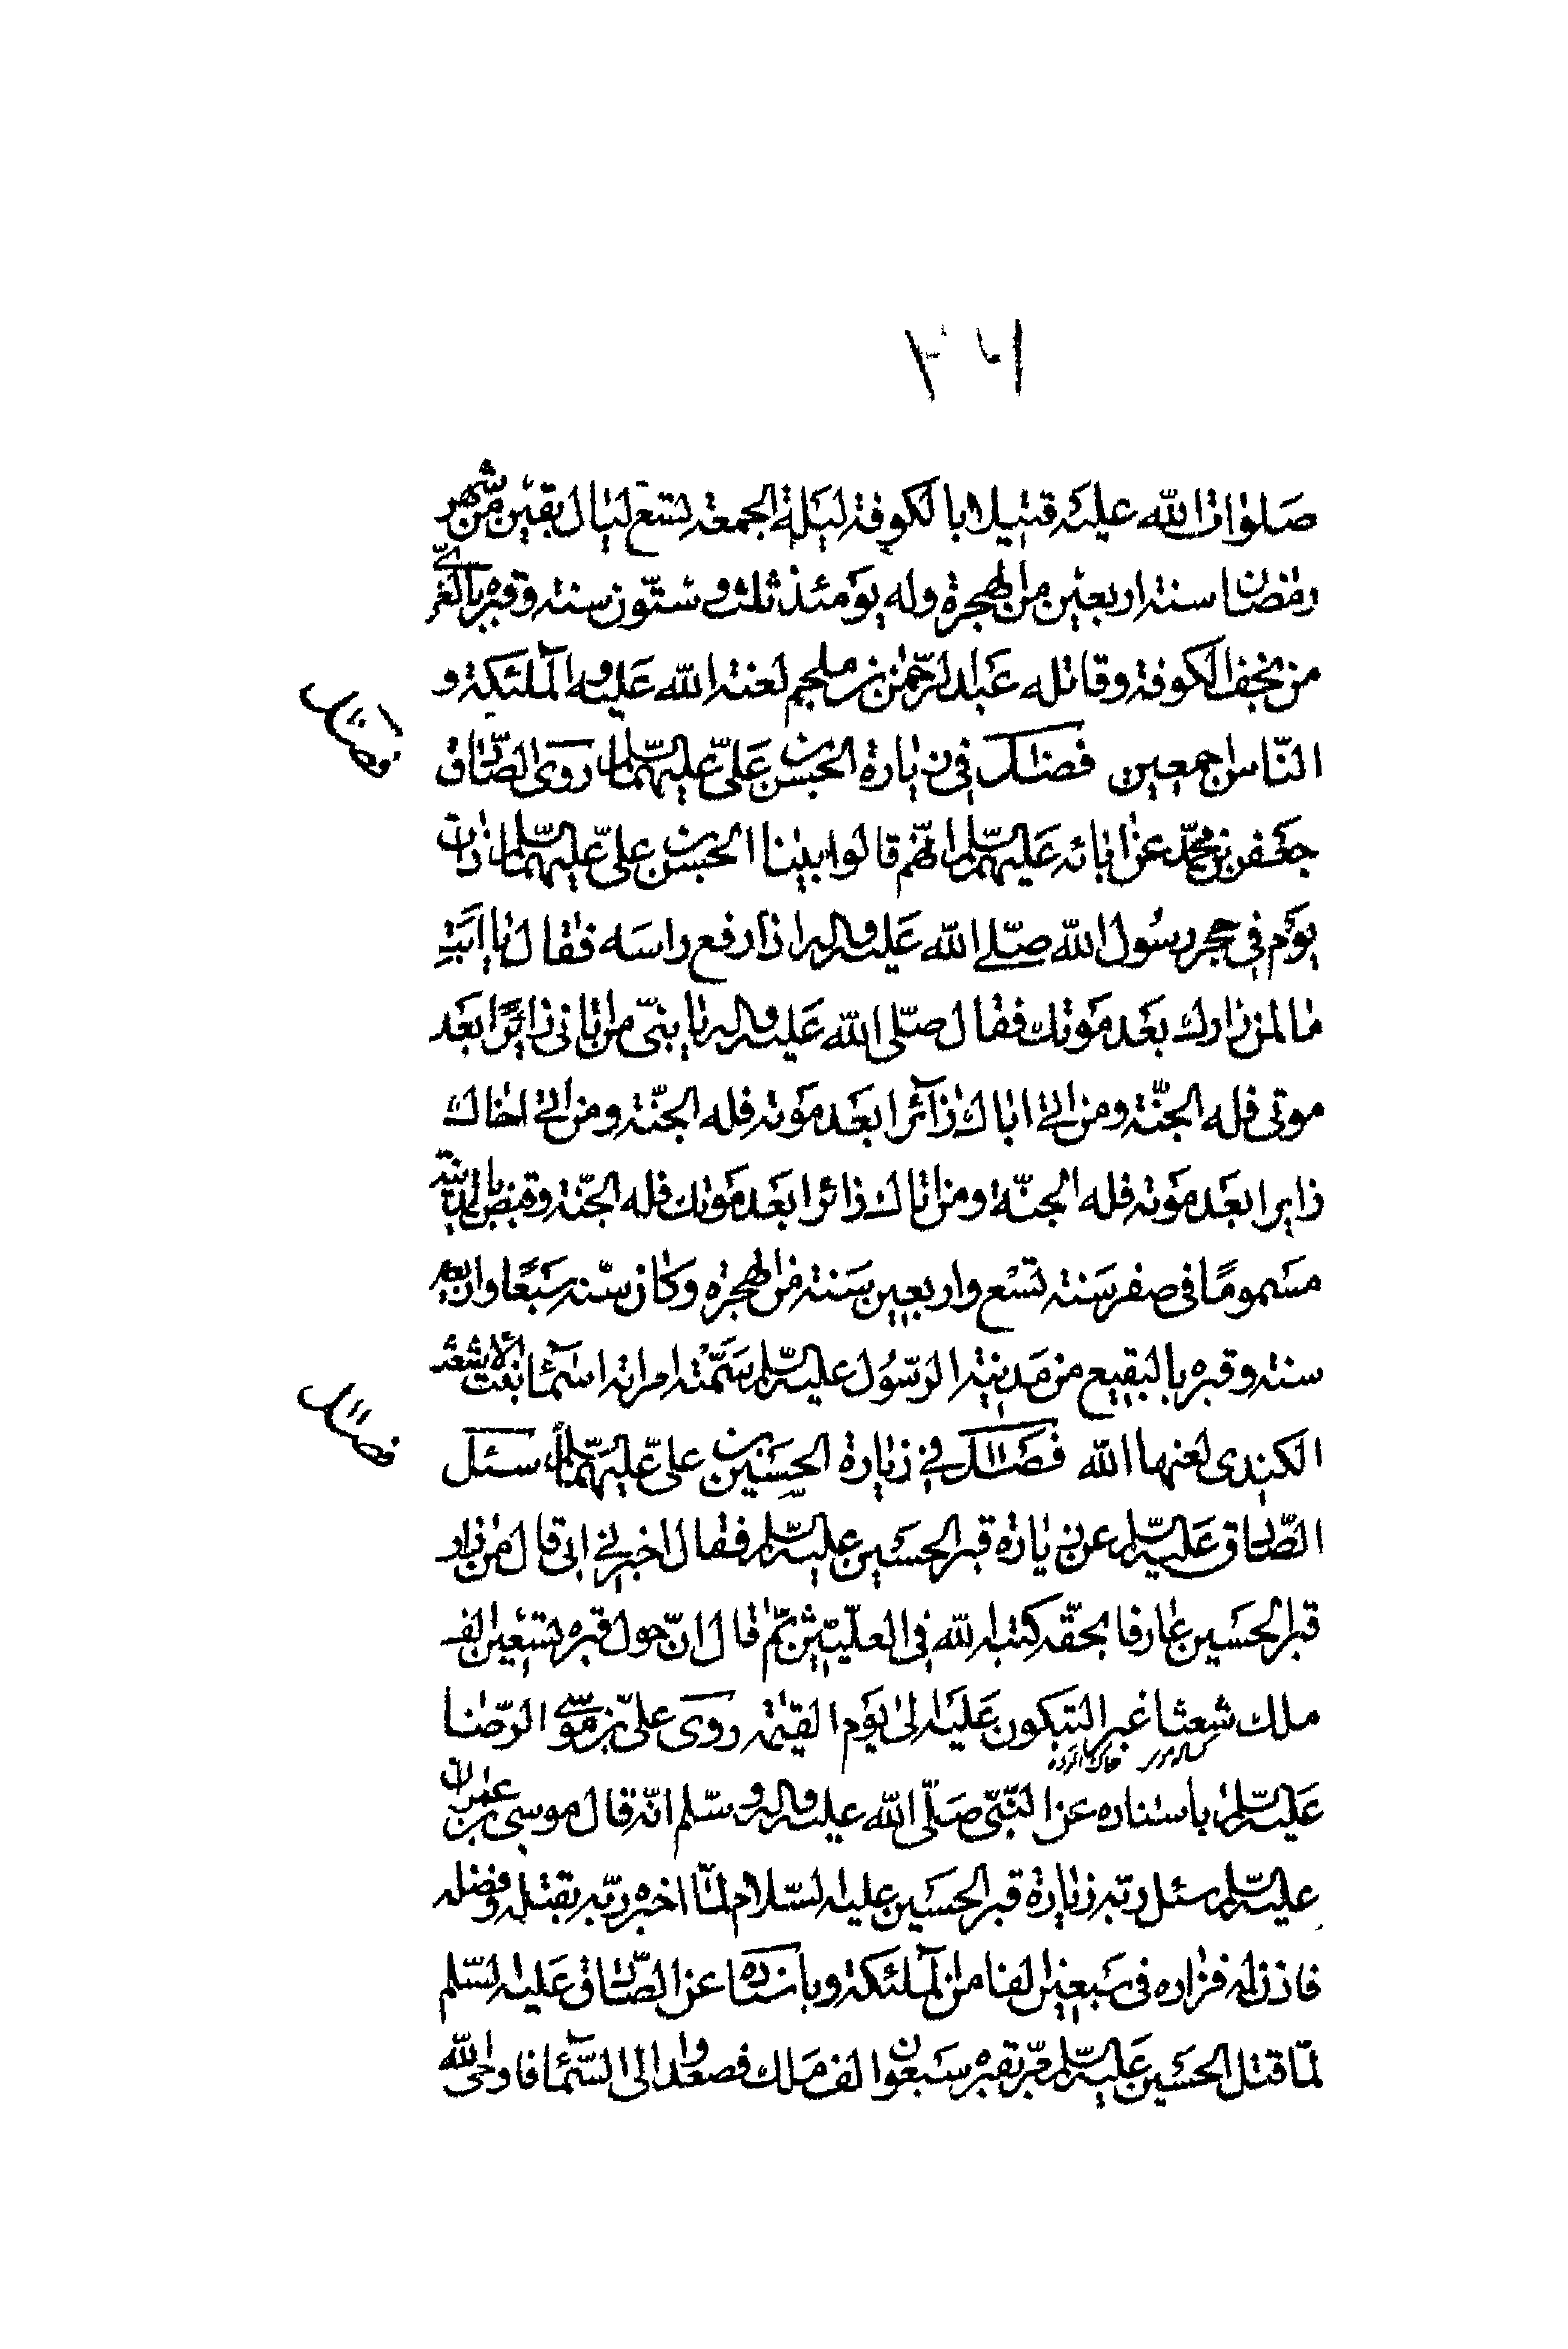 صلوات الله عليه قتيلا بالكوفة ليلة الجمعة لتسع ليال بقين من شهر
رمضان سنة اربعين من الهجرة وله يومئذ ثلث و ستون سنة وقبره بالغري
من نجف الكوفة وقاتله عبد الرحمن بن ملجم لعنة الله عليه والملئكة و
الناس اجمعين فصل في زيارة الحسن بن علي عليهما السلام روى الصادق
جعفر بن محمد عن ابائه عليهم السلم انهم قالوا بينا الحسن بن علي عليهما السلم ذات
يوم في حجر رسول الله صلى الله عليه واله اذ رفع راسه فقال يا ابت
ما لمن زارك بعد موتك فقال صلى الله عليه واله يا بني من اتاني زايرا بعد
موتي فله الجنة ومن اتى اباك زآئرا بعد موته فله الجنة ومن اتى اخاك
زايرا بعد موته فله الجنة ومن اتاك زائرا بعد موتك فله الجنة وقبض بالمدينة
مسموما في صفر سنة تسع واربعين سنة من الهجرة وكان سنه سبعا واربعين
سنة وقبره بالبقيع من مدينة الرسول عليه السلم سمته امراته اسمآء بنت الاشعث
الكندي لعنها الله فصل في زيارة الحسين بن علي عليهما السلم سئل
الصادق عليه السلم عن زيارة قبر الحسين عليه السلم فقال اخبرني ابي قال من زار
قبر الحسين عارفا بحقه كتبه الله في العليين ثم قال ان حول قبره سبعين الف
ملك شعثا غبرا يبكون عليه الى يوم القيمة روى علي بن موسى الرضا
عليه السلم باسناده عن النبي صلى الله عليه واله وسلم انه قال موسى بن عمران
عليه السلم سئل ربه زيارة قبر الحسين عليه السلام لما اخبره ربه بقتله وفضله
فاذن له فزاره في سبعين الفا من الملئكة وباسناده عن الصادق عليه السلم
لما قتل الحسين عليه السلم مر بقبره سبعون الف ملك فصعدوا الى السمآء فاوحى الله
فصل
فصل